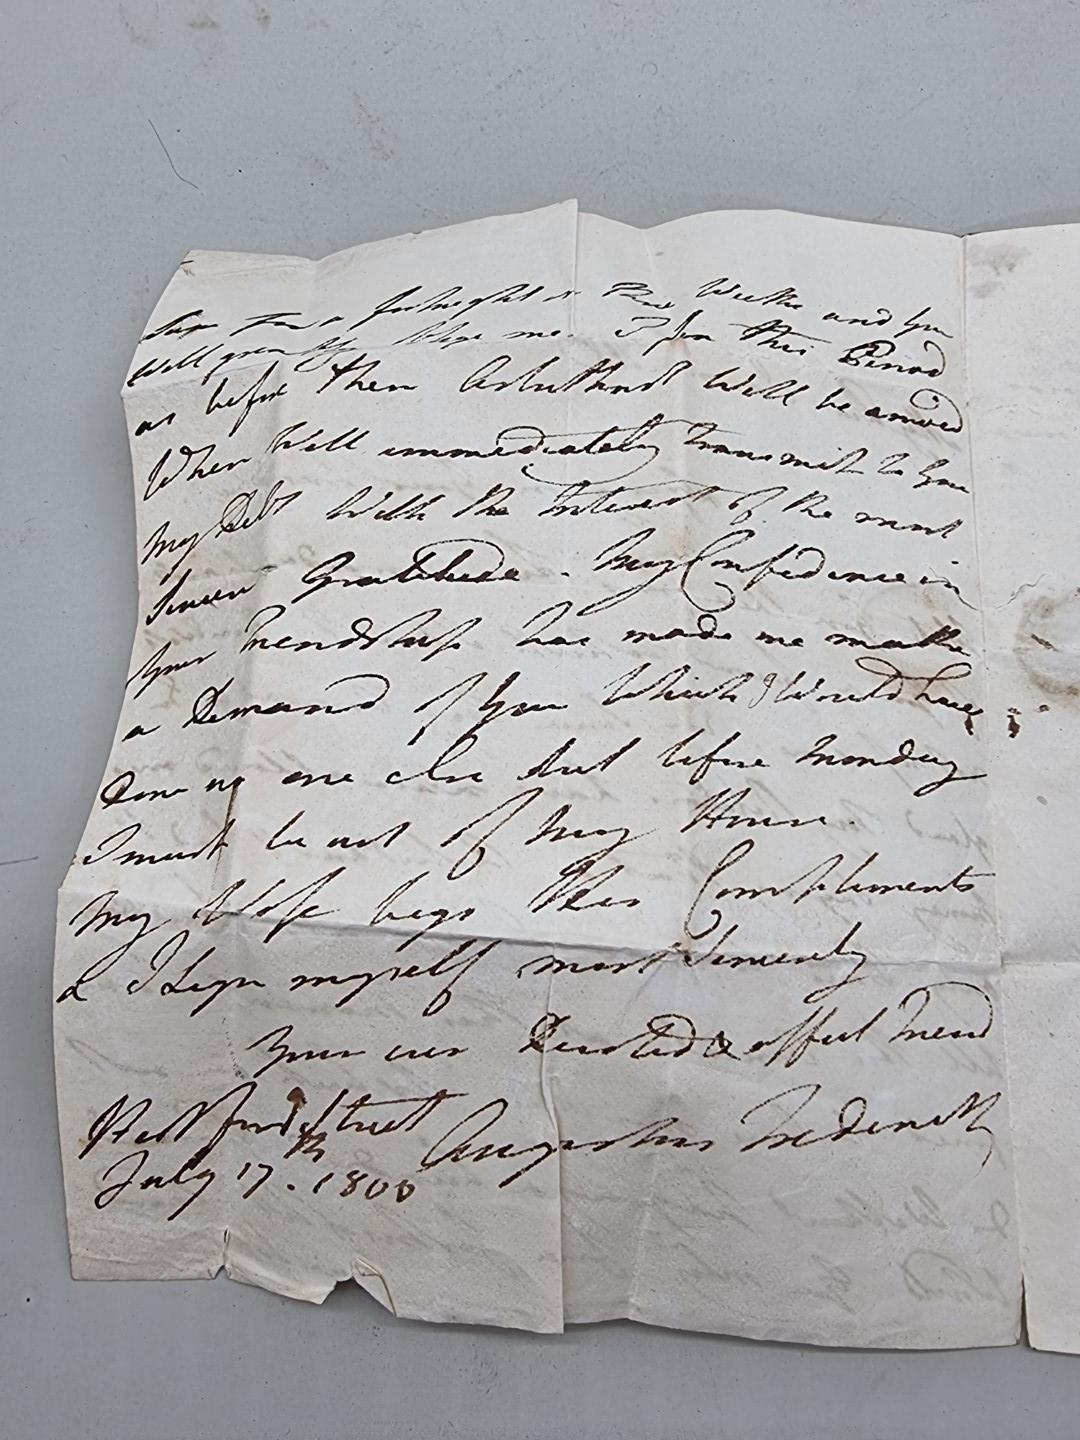 for a fortnight or three Weeks and you
Will greatly oblige me. I fix this Period
as before then Arbuthnot Will be arrived
When Will immediately transmit to you
My Debt With the Interest of the most
sincere Gratitude. My Confidence in
your Friendship has made me make
a Demand of you Which I Would have
done no one else But before Monday
I must be out of My House.
My Wife begs Her Compliments
& I Sign myself most Sincerely
Your ever Devoted & afft Friend
Hertford Street Augustus Frederick
July 17th. 1800